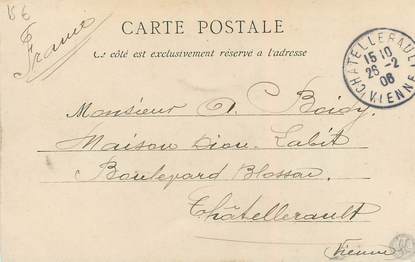 15 €
France
CARTE POSTALE
Ce côté est exclusivement réservé à l'adresse
CHATELLERAULT
15 10
26-2
06
VIENNE
Monsieur A. Boidy
Maison Dion. Labit
Boulevard Blossac.
Châtellerault
Vienne